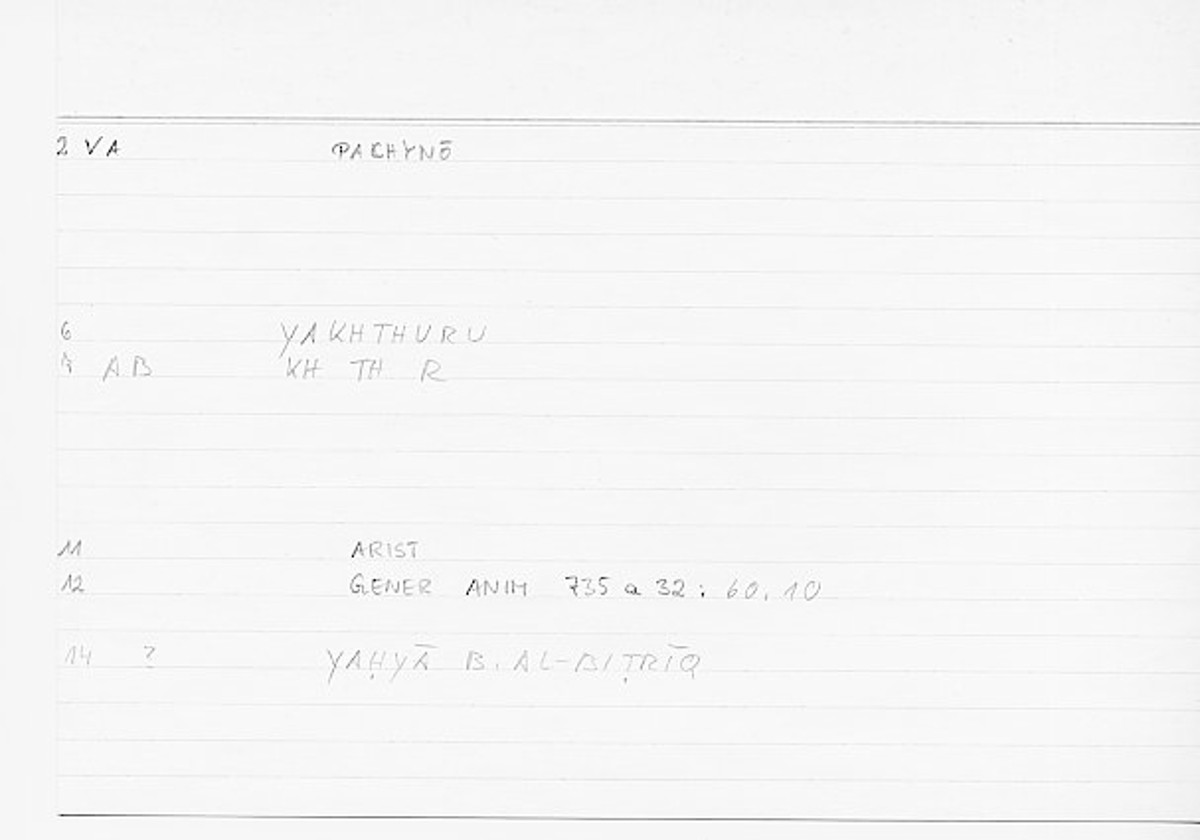 2 VA PACHYNŌ
6 YAKHTHURU
7 AB KH TH R
11 ARIST
12 GENER ANIM 735 a 32 : 60,10
14 ? YAḤYĀ B. AL-BIṬRĪQ